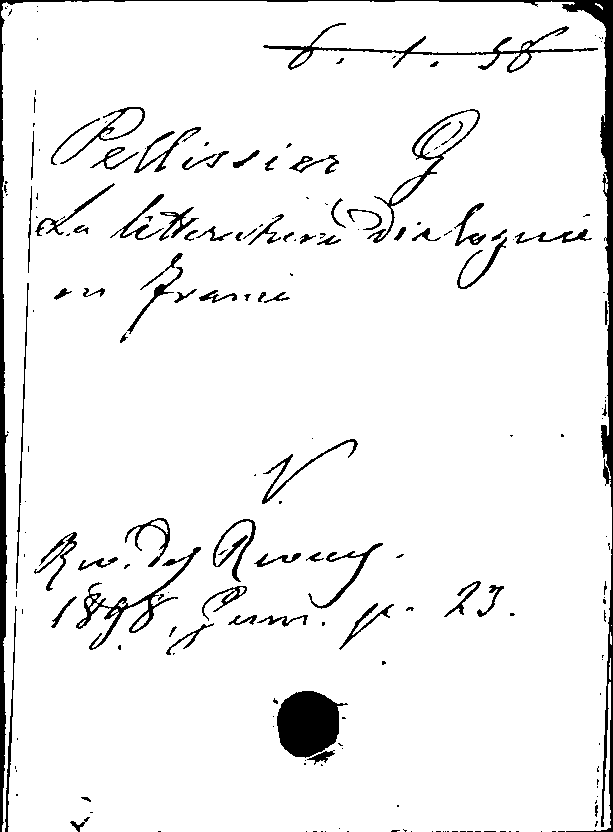 6. 1. 56
Pellissier G
La littérature dialoguée
en France
V.
Rev. des Revues.
1898, p. 23.